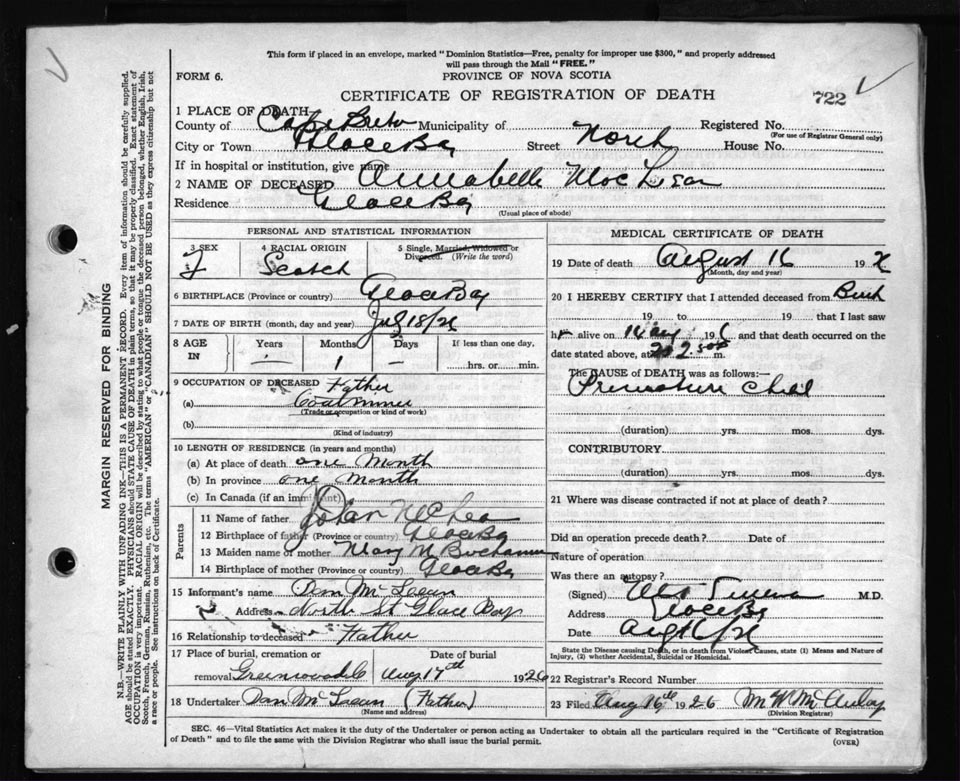 This form if placed in an envelope, marked "Dominion Statistics—Free, penalty for improper use $300," and properly addressed
will pass through the Mail "FREE."
FORM 6.
PROVINCE OF NOVA SCOTIA
CERTIFICATE OF REGISTRATION OF DEATH
722
1 PLACE OF DEATH
County of Cape Breton Municipality of Registered No.
(For use of Registrar General only)
City or Town Glace Bay Street North House No.
If in hospital or institution, give name
2 NAME OF DECEASED Annabelle
Residence Glace Bay
(Usual place of abode)
PERSONAL AND STATISTICAL INFORMATION
3 SEX F
4 RACIAL ORIGIN Scotch
5 Single, Married, Widowed or
Divorced. (Write the word)
6 BIRTHPLACE (Province or country) Glace Bay
7 DATE OF BIRTH (month, day, and year) July 18/26
8 AGE IN
Years Months Days If less than one day,
- 1 - hrs. or min.
9 OCCUPATION OF DECEASED Father
(a) Coal miner
(Trade or occupation or kind of work)
(b)
(Kind of industry)
10 LENGTH OF RESIDENCE (in years and months)
(a) At place of death one Month
(b) In province one Month
(c) In Canada (if an immigrant)
Parents
11 Name of father
12 Birthplace of father (Province or country) Glace Bay
13 Maiden name of mother Mary M Buchanan
14 Birthplace of mother (Province or country) Glace Bay
15 Informant's name Dan McLean
Address North St Glace Bay
16 Relationship to deceased Father
17 Place of burial, cremation or
removal Greenwood
Date of burial
Aug 17th 1926
18 Undertaker Dan McLean (Father)
(Name and address)
MEDICAL CERTIFICATE OF DEATH
19 Date of death August 16 192
(Month, day and year)
20 I HEREBY CERTIFY that I attended deceased from Birth
19 to 19 that I last saw
her alive on 192 and that death occurred on the
date stated above, at m.
The CAUSE of DEATH was as follows:—
Premature Child
(duration) yrs. mos. dys.
CONTRIBUTORY.
(duration) yrs. mos. dys.
21 Where was disease contracted if not at place of death?
Did an operation precede death? Date of
Nature of operation
Was there an autopsy?
(Signed) M.D.
Address Glace Bay
Date Aug 16/26
State the Disease causing Death, or in death from Violent Causes, state (1) Means and Nature of
Injury, (2) whether Accidental, Suicidal or Homicidal.
22 Registrar's Record Number
23 Filed Aug 16th 1926
(Division Registrar)
SEC. 46—Vital Statistics Act makes it the duty of the Undertaker or person acting as Undertaker to obtain all the particulars required in the "Certificate of Registration
of Death" and to file the same with the Division Registrar who shall issue the burial permit.
(OVER)
MARGIN RESERVED FOR BINDING
N.B.—WRITE PLAINLY WITH UNFADING INK—THIS IS A PERMANENT RECORD. Every item of information should be carefully supplied.
AGE should be stated EXACTLY. PHYSICIANS should STATE CAUSE OF DEATH in plain terms, so that it may be properly classified. Exact statement of
OCCUPATION is very important. RACIAL ORIGIN will be described by stating to what people or tongue the deceased person belonged, whether English, Irish,
Scotch, French, German, Russian, Ruthenian, etc. The terms "AMERICAN" or "CANADIAN" SHOULD NOT BE USED as they express citizenship but not
a race or people. See instructions on back of Certificate.